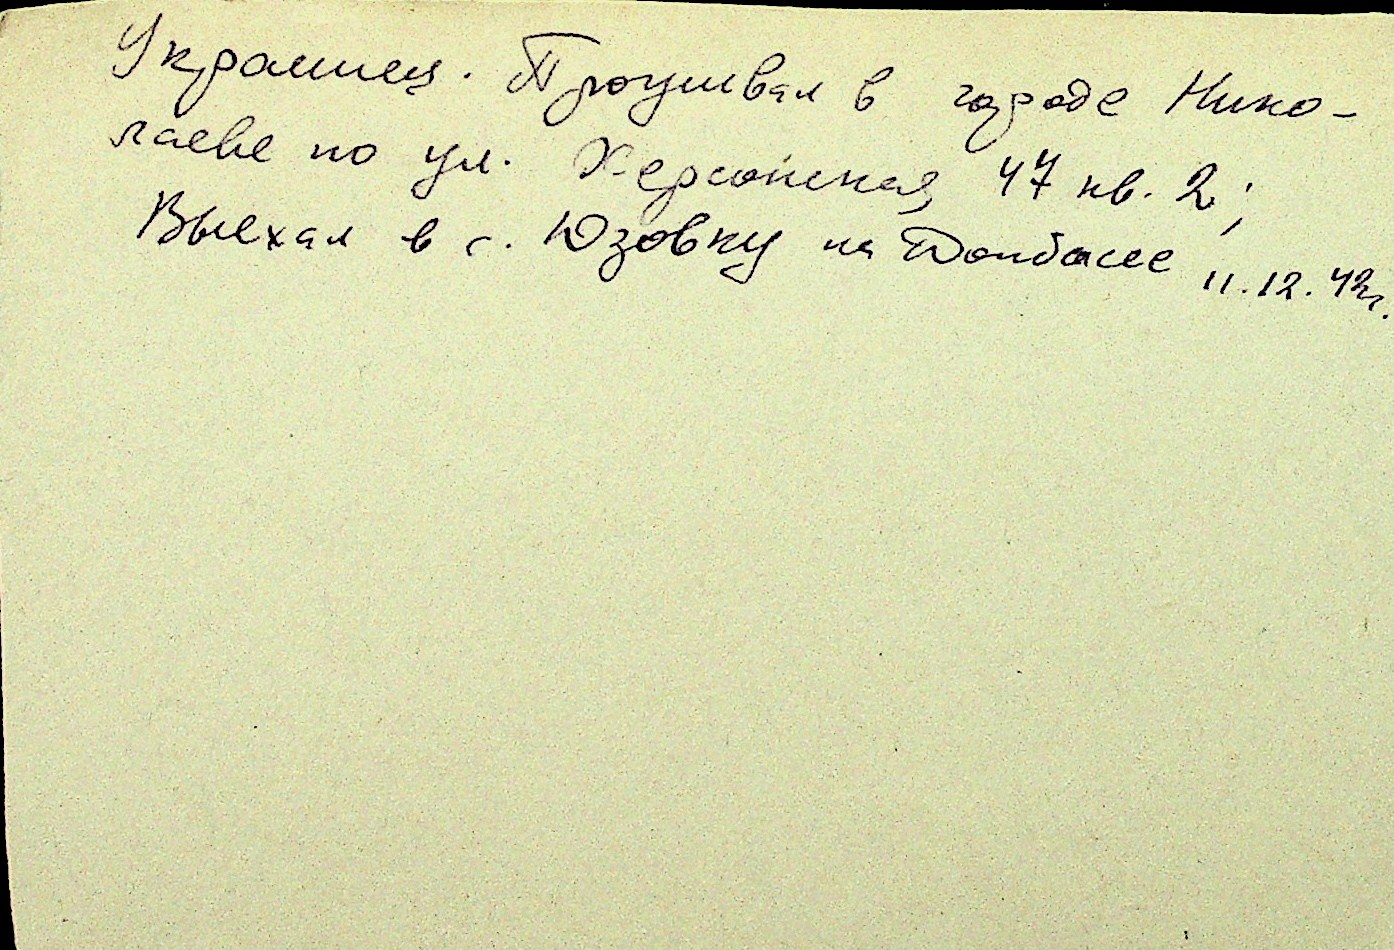 Украинец. Проживал в городе Нико-
лаеве по ул. Херсонская, 47 кв. 2;
Выехал в г. Юзовку на Донбассе 11.12.42г.